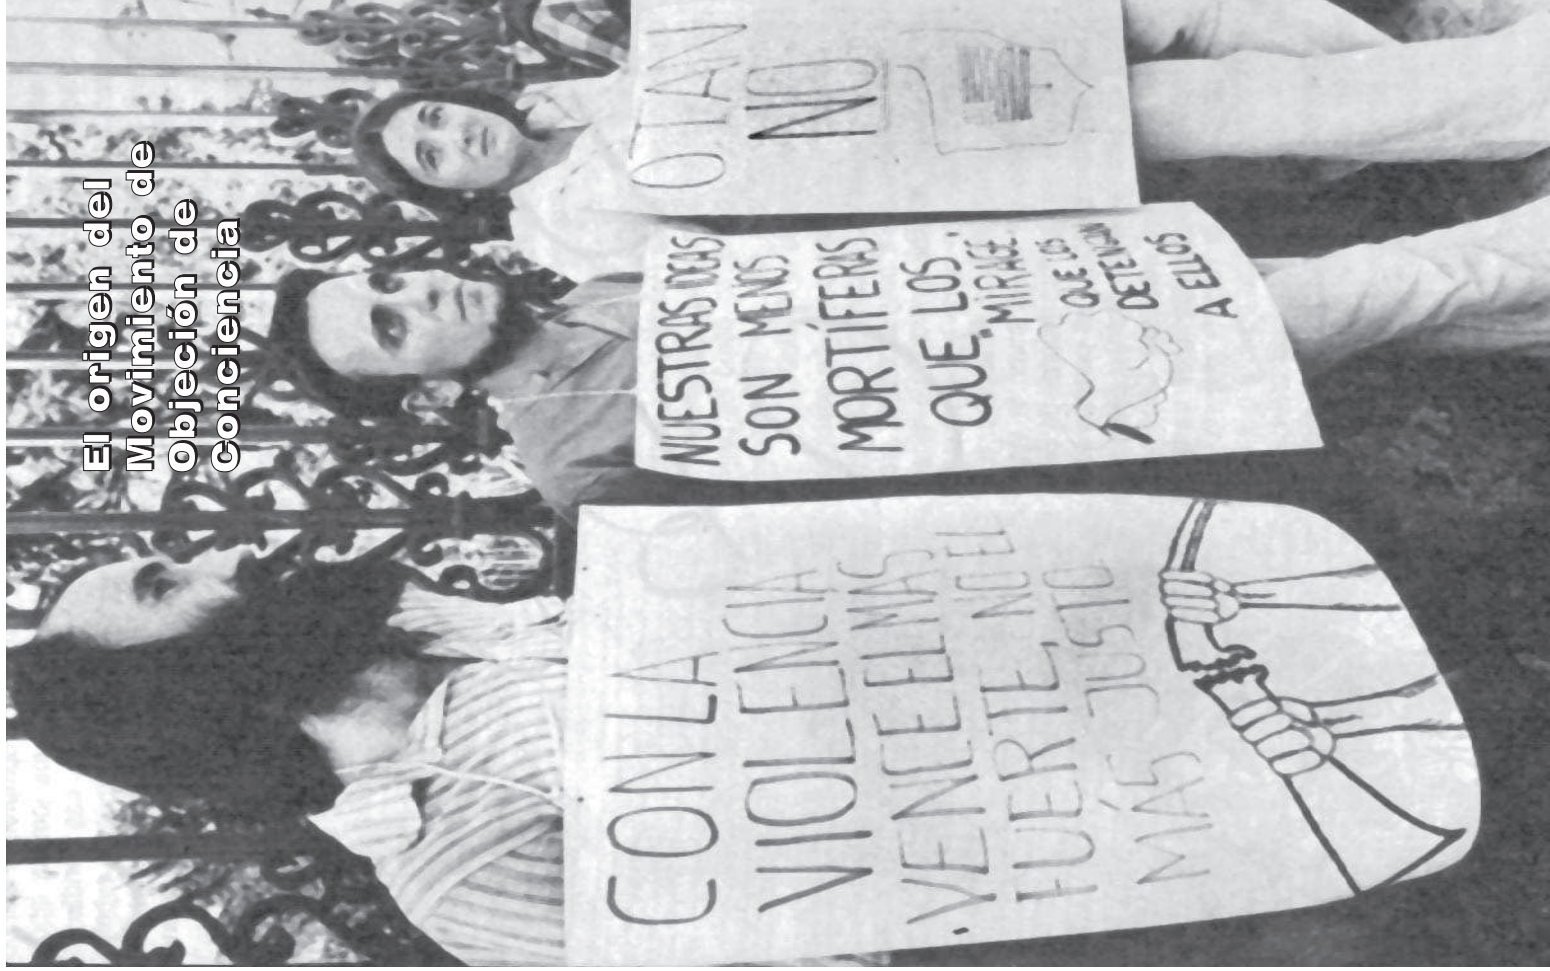 El origen del
Movimiento de
Objeción de
Conciencia
CON LA
VIOLENCIA
VENCE EL MAS
FUERTE, NO EL
MÁS JUSTO
NUESTRAS IDEAS
SON MENOS
MORTÍFERAS
QUE LOS
"MIRAGE"
QUE LOS
DETENGAN
A ELLOS
OTAN
NO